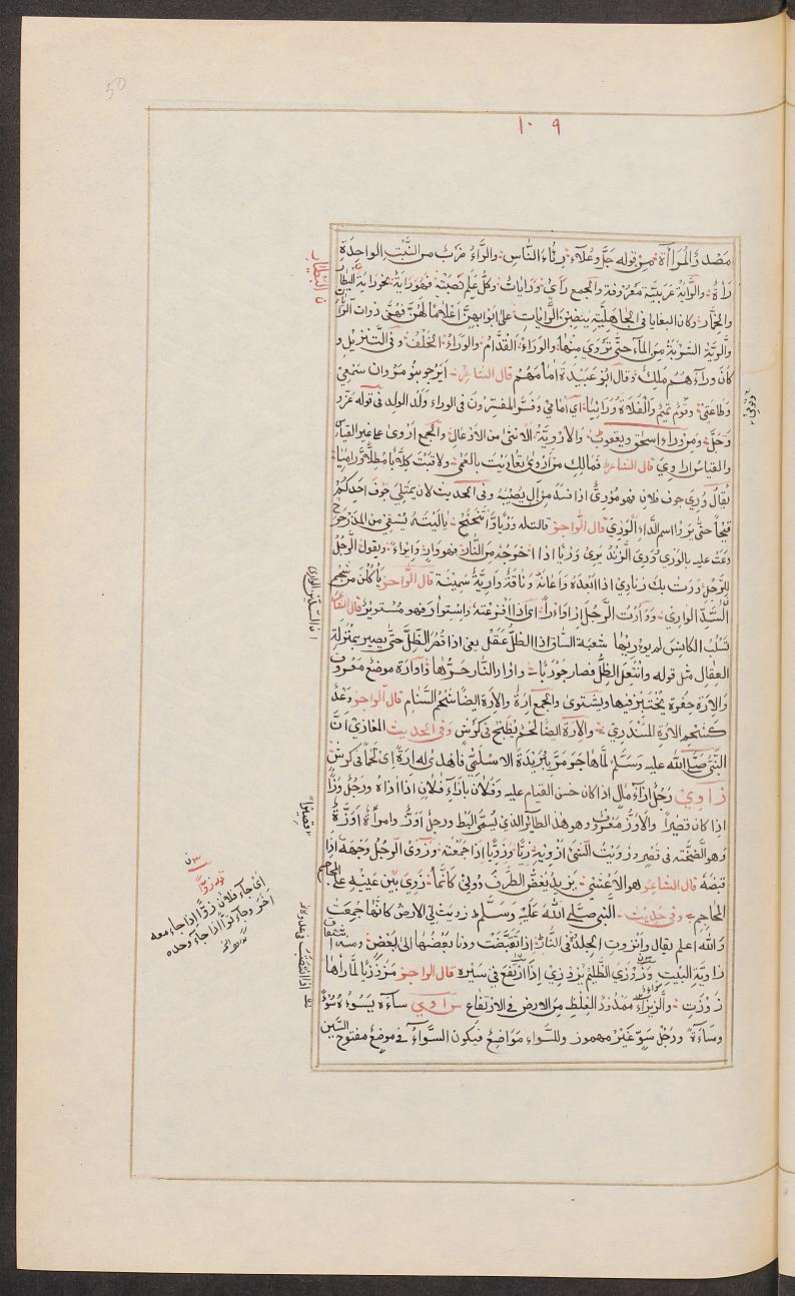 50
١٠٩
مصدر المراآة من قوله جل وعلا رئاء الناس والراء ضرب من النبت الواحدة
راة والراية عربية معروفة والجمع راي ورايات وكل علم نصبته فهو راية نحو راية البيطار
والخمار وكان البغايا في الجاهلية ينصبن الرايات على ابوابهن اعلاما لهن فهن ذوات الراي
والرية الشربة من الماء حتى تروي منها والوراء القدام والوراء الخلف وفى التنزيل و
كان وراءهم ملك وقال ابو عبيدة امامهم قال الشاعر ايرجو بنو مروان سمعي
وطاعتي وقوم تميم والفلاة ورائيا اي امامي وفسر المفسرون في الوراء ولد الولد في قوله عز و
وجل ومن وراء اسحق يعقوب والاروية الانثى من الاوعال والجمع اروى على غير القياس
والقياس اراوي قال الشاعر فمالك من اروى تعاديت بالعمى ولاقيت كلابا مطلا وراميا
يقال وري جوف فلان فهو موري اذا فسد من ال يصيبه وفى الحديث لان يمتلي جوف احدكم
قيحا حتى يريه واسم الداء الوري قال الراجز قالت له وريا اذا تنحنح ياليته يسقى من الذرحرح
دعت عليه بالوري وورى الزند يري وريا اذا خرجت منه النار فهو وار وايراء ويقول الرجل
للرجل ورت بك زنادي اذا انجده واعانه وناقة وارية سمينة قال الراجز ياكلن من شحم
السديف الواري ووأرت الرجل ازاواراً اى اذا افزعته واستوار فهو مستوير قال الشاعر
تسلب الكانس لم يور بها شعبة الساق اذا الظل عقل يعني اذا قصر الظل حتى يصير بمنزلة
العقال مثل قوله وانتعل الظل فصار جوربا واوار النار حرها ووارة موضع معروف
والارة حفرة يختبز فيها ويشتوى والجمع ارة والارة ايضا شحم السنام قال الراجز وعد
كشحم الارة المسرهد والارة ايضا لحم يطبخ في كرش وفى الحديث المغازي ان
النبي صلى الله عليه وسلم لما هاجر مر ببريدة الاسلمي فاهدى له ارة اى لحما في كرش
ز ا و ي رجل ازاء مال اذا كان حسن القيام عليه وفلان بازاء فلان اذا اذاه ورجل وزا
اذا كان قصيرا والاوز معروف وهو هذا الطائر الذي يسمى البط ورجل اوز وامراة اوزة
وهو الضخمة في قصر وزويت الشي ازويه زيا وزويا اذا جمعته وزوى الرجل وجهه اذا
قبضه قال الشاعر هو الاعشى يزيد يغض الطرف دوني كانما زوى بين عينيه على المحاجم
المحاجم وفى حديث النبي صلى الله عليه وسلم زويت لي الارض كانها جمعت
والله اعلم يقال وانزوت الجلدة في النار اذا تقبضت ودنا بعضها الى بعض ومنه اشتقاق
زاوية البيت وزوزى الظليم يزوزي اذا ارتفع في سيره قال الراجز مزوزيا لما راها
زوزت والزيزاء ممدود الغلظ من الارض في الارتفاع س ا و ي ساءه يسوءه سوءا
وساءة ورجل سو غير مهموز وللسواء مواضع فيكون السواء في موضع مفتوح السين
ن البيطار
قوله زوا
اي جاء فلان زوا اذا جاء معه
اخر وجاء توا اذا جاء وحده
قصيرا